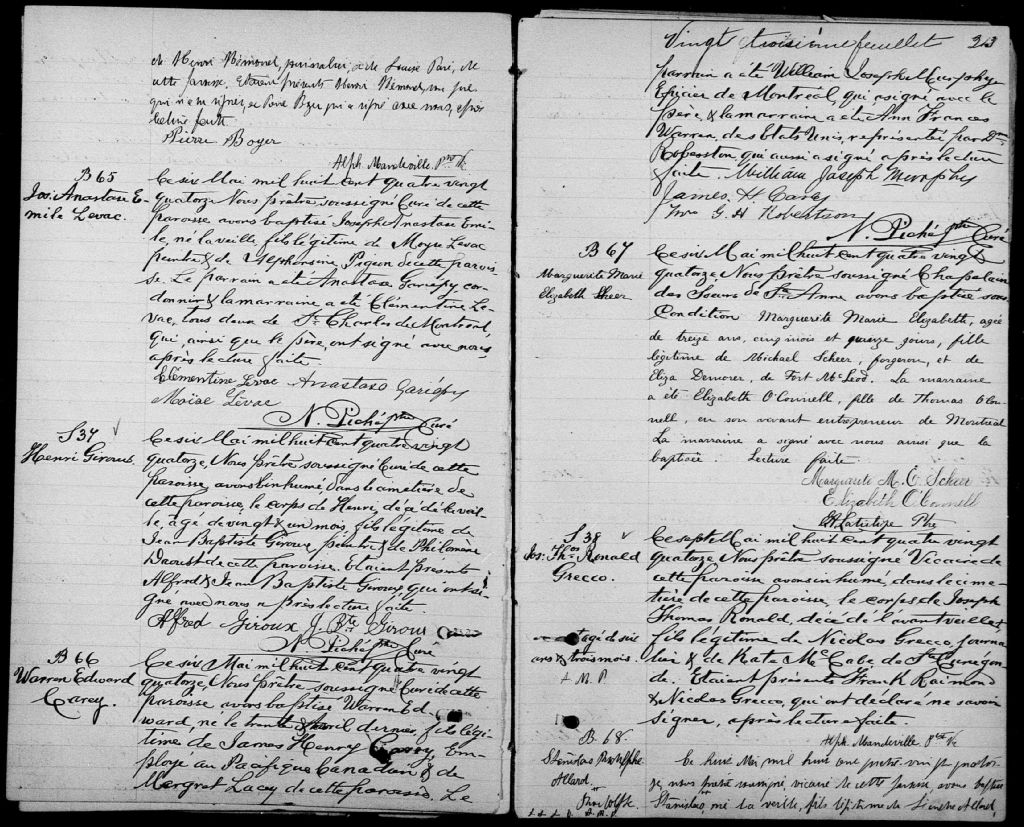 de Henri Mémonel, journalier, & de Louise Paré, de
cette paroisse. Etaient présents Henri Mémonel, son père
qui n'a su signer, et Pierre Boyer qui a signé avec nous, après
lecture faite.
Pierre Boyer
Alph. Mandeville Ptre Vic
B 65
Jos. Anastase E-
mile Levac.
Ce six Mai mil huit cent quatre vingt
quatorze Nous prêtre soussigné Curé de cette
paroisse avons baptisé Joseph Anastase Emi-
le, né la veille, fils légitime de Moyse Levac
peintre & de Alphonsine Pigeon de cette parois-
se. Le parrain a été Anastase Gariépy cor-
donnier & la marraine a été Clémentine Le-
vac, tous deux de St Charles de Montréal
qui, ainsi que le père, ont signé avec nous
après lecture faite
Clémentine Levac Anastase Gariépy
Moïse Lévac
N. Piché ptre Curé
S 37
Henri Giroux.
Ce six Mai mil huit cent quatre vingt
quatorze, Nous prêtre soussigné Curé de cette
paroisse, avons inhumé, dans le cimetière de
cette paroisse, le corps de Henri, décédé la veil-
le, âgé de vingt & un mois, fils légitime de
Jean Baptiste Giroux peintre & de Philomène
Daoust de cette paroisse. Etaient présents
Alfred & Jean Baptiste Giroux, qui ont si-
gné avec nous après lecture faite
Alfred Giroux J. Bte Giroux
N. Piché ptre Curé
B 66
Warren Edward
Carey.
Ce six Mai mil huit cent quatre vingt
quatorze, Nous prêtre soussigné Curé de cette
paroisse avons baptisé Warren Ed-
ward, né le trente Avril dernier, fils légi-
time de James Henry Carey, Em-
ployé au Pacifique Canadien & de
Margret Lacey de cette paroisse. Le
Vingt troisième feuillet 23
parrain a été William Joseph Murphy
Epicier de Montréal, qui a signé avec le
père, & la marraine a été Ann Frances
Warren, des Etats Unis, représentée par Dme
Robertson qui aussi a signé après lecture
faite. William Joseph Murphy
James H Carey
Mrs G. H Robertson
N. Piché ptre Curé
B 67
Marguerite Marie
Elizabeth Sheer
Ce six Mai mil huit cent quatre vingt
quatorze Nous prêtre soussigné Chapelain
des Soeurs de Ste Anne avons baptisé sous
Condition Marguerite Marie Elizabeth, agée
de treize ans, cinq mois et quinze jours, fille
légitime de Michael Scheer, forgeron, et de
Eliza Demorer, de Fort McLeod. La marraine
a été Elizabeth O'Connell, fille de Thomas O'Con-
nell, en son vivant entrepreneur de Montréal
La marraine a signé avec nous ainsi que la
baptisée. Lecture faite
Marguerite M. E. Scheer
Elizabeth O'Connell
Ptre
S 38
Jos. Thos Ronald
Grecco.
agé de six
ans & trois mois.
+ M. P.
Ce sept Mai mil huit cent quatre vingt
quatorze Nous prêtre soussigné Vicaire de
cette paroisse avons inhumé, dans le cime-
tière de cette paroisse, le corps de Joseph
Thomas Ronald, décédé l'avant veille,
fils légitime de Nicolas Grecco, journa-
lier & de Kate McCabe de Ste Cunégon-
de. Etaient présents Frank Raimond
& Nicolas Grecco, qui ont déclaré ne savoir
signer, après lecture faite
Alph. Mandeville Ptre Vic
B 68
Stanislas Rodolphe
Allard.
Ce huit Mai mil huit cent quatre vingt quator-
ze, nous prêtre soussigné, vicaire de cette paroisse, avons baptisé
Stanislas, né la veille, fils légitime de Allard,